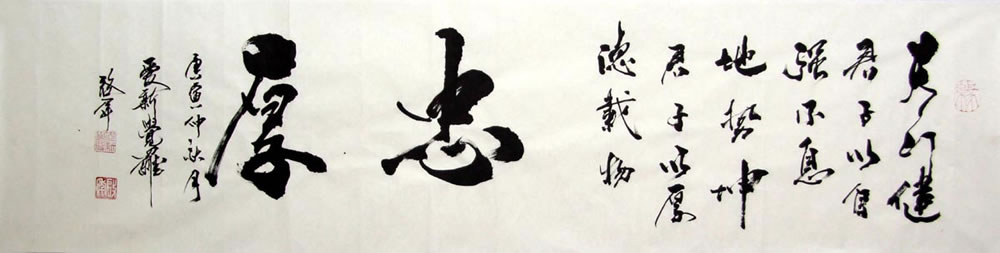 天行健
君子以自
强不息
地势坤
君子以厚
德載物
忠
厚
庚寅仲秋月
愛新覺羅